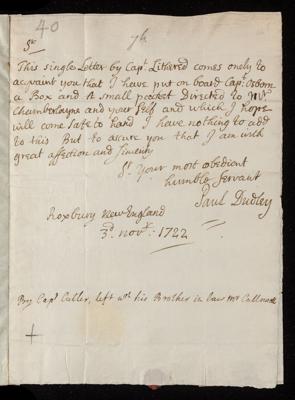 40
7h
Sr
This single Letter by Capt. Lithered comes onely to
acquaint you that I have put on board Capt. Osborn
a Box and A small packet Directed to Mr.
Chamberlayne and your Self and which I hope
will come safe to hand I have nothing to add
to this But to assure you that I am with
great affection and
Sr. Your most obedient
humble servant
Paul Dudley
Roxbury New England
3d. novr: 1722
By Capt Caller, left wth his Brother in law Mr